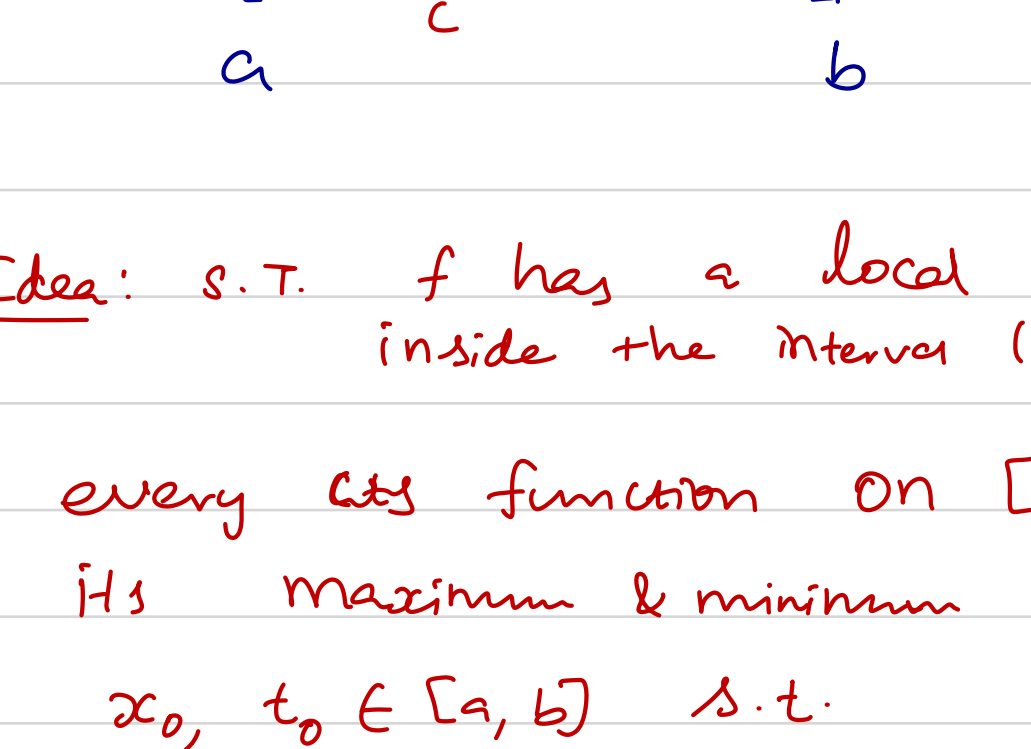 c
a b
Idea: S.T. f has a local
inside the interval (
every cts function on [
its maximum & minimum
x₀, t₀ ∈ [a, b] s.t.